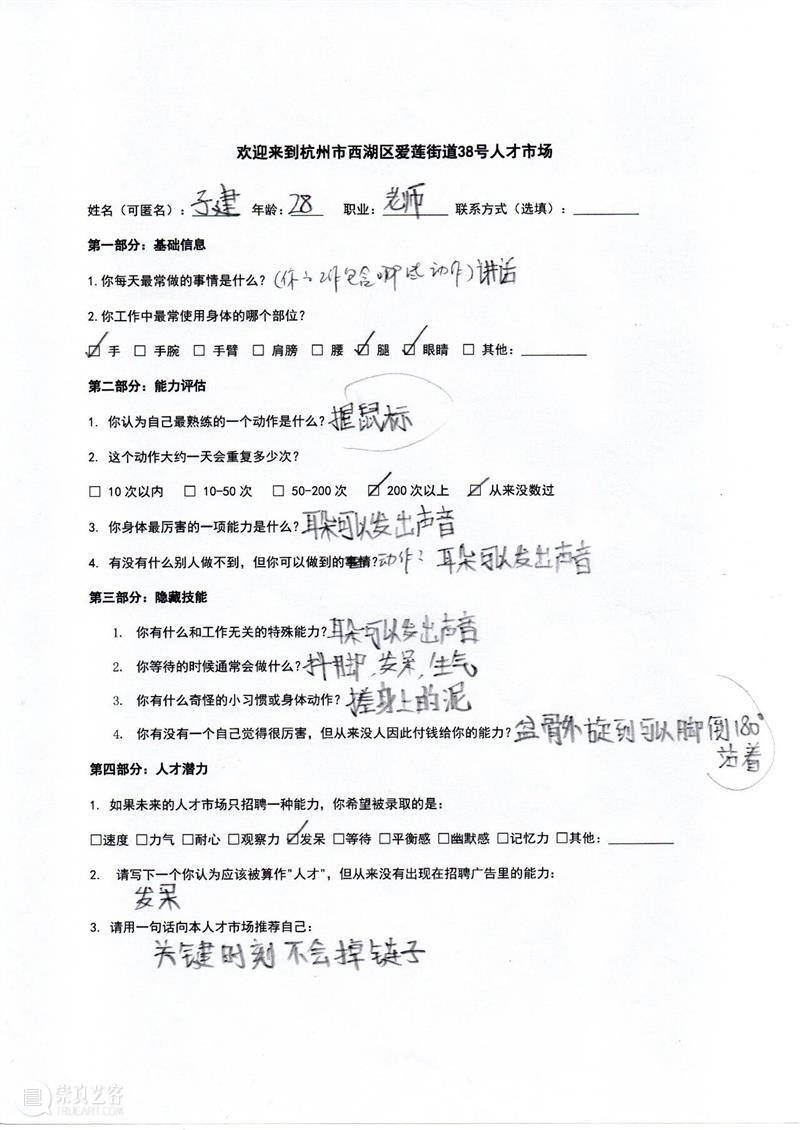 欢迎来到杭州市西湖区爱莲街道38号人才市场
姓名（可匿名）：子建 年龄：28 职业：老师 联系方式（选填）：
第一部分：基础信息
1.你每天最常做的事情是什么？(你的工作包含哪些动作)讲话
2.你工作中最常使用身体的哪个部位？
☑ 手 □ 手腕 □ 手臂 □ 肩膀 □ 腰 ☑ 腿 ☑ 眼睛 □ 其他：
第二部分：能力评估
1. 你认为自己最熟练的一个动作是什么？握鼠标
2. 这个动作大约一天会重复多少次？
□ 10 次以内 □ 10-50 次 □ 50-200 次 ☑ 200 次以上 ☑ 从来没数过
3. 你身体最厉害的一项能力是什么？耳朵可以发出声音
4. 有没有什么别人做不到，但你可以做到的事情？动作？耳朵可以发出声音
第三部分：隐藏技能
1. 你有什么和工作无关的特殊能力？耳朵可以发出声音
2. 你等待的时候通常会做什么？抖脚、发呆、生气
3. 你有什么奇怪的小习惯或身体动作？搓身上的泥
4. 你有没有一个自己觉得很厉害，但从来没人因此付钱给你的能力？盆骨外旋到可以脚倒180°
站着
第四部分：人才潜力
1. 如果未来的人才市场只招聘一种能力，你希望被录取的是：
□速度 □力气 □耐心 □观察力 ☑发呆 □等待 □平衡感 □幽默感 □记忆力 □其他：
2. 请写下一个你认为应该被算作"人才"，但从来没有出现在招聘广告里的能力：
发呆
3. 请用一句话向本人才市场推荐自己：
关键时刻不会掉链子
崇真艺客
TRUEART.COM